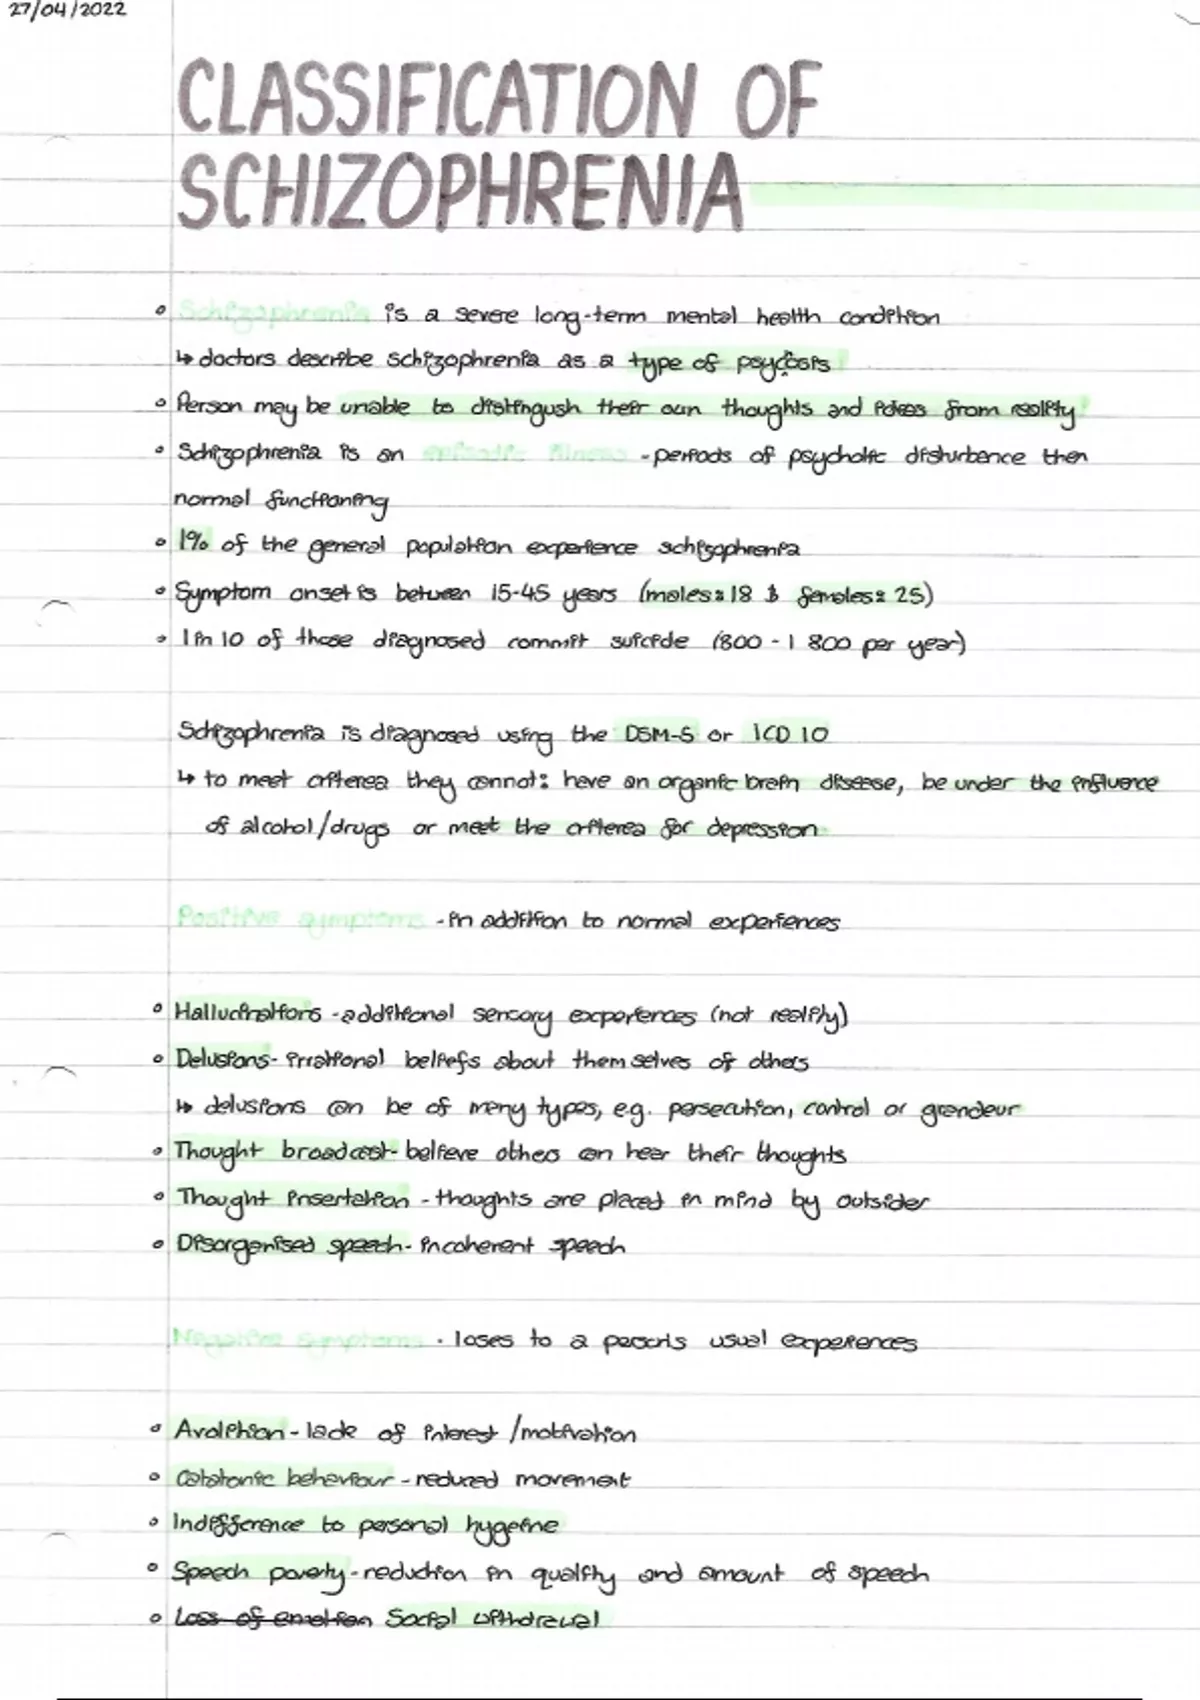 27/04/2022
CLASSIFICATION OF
SCHIZOPHRENIA
Schizophrenia is a severe long-term mental health condition
↳ doctors describe schizophrenia as a type of psycosis
Person may be unable to distingush their own thoughts and ideas from reality
Schizophrenia is an episodic illness - periods of psychotic disturbance then
normal functioning
1% of the general population experience schizophrenia
Symptom onset is between 15-45 years (males: 18 & females: 25)
1 in 10 of those diagnosed commit suicide (800 - 1 800 per year)
Schizophrenia is diagnosed using the DSM-5 or ICD 10
↳ to meet criterea they cannot: have an organic brain disease, be under the influence
of alcohol/drugs or meet the criterea for depression
Positive symptoms - in addition to normal experiences
Hallucinations - additional sensory experiences (not reality)
Delusions - irrational beliefs about themselves of others
↳ delusions can be of many types, e.g. persecution, control or grandeur
Thought broadcast - believe others can hear their thoughts
Thought insertation - thoughts are placed in mind by outsider
Disorganised speech - incoherent speech
Negative symptoms - loses to a persons usual experiences
Avolition - lack of interest /motivation
Catatonic behaviour - reduced movement
Indifference to personal hygeine
Speech poverty - reduction in quality and amount of speech
Loss of emotion Social withdrawal